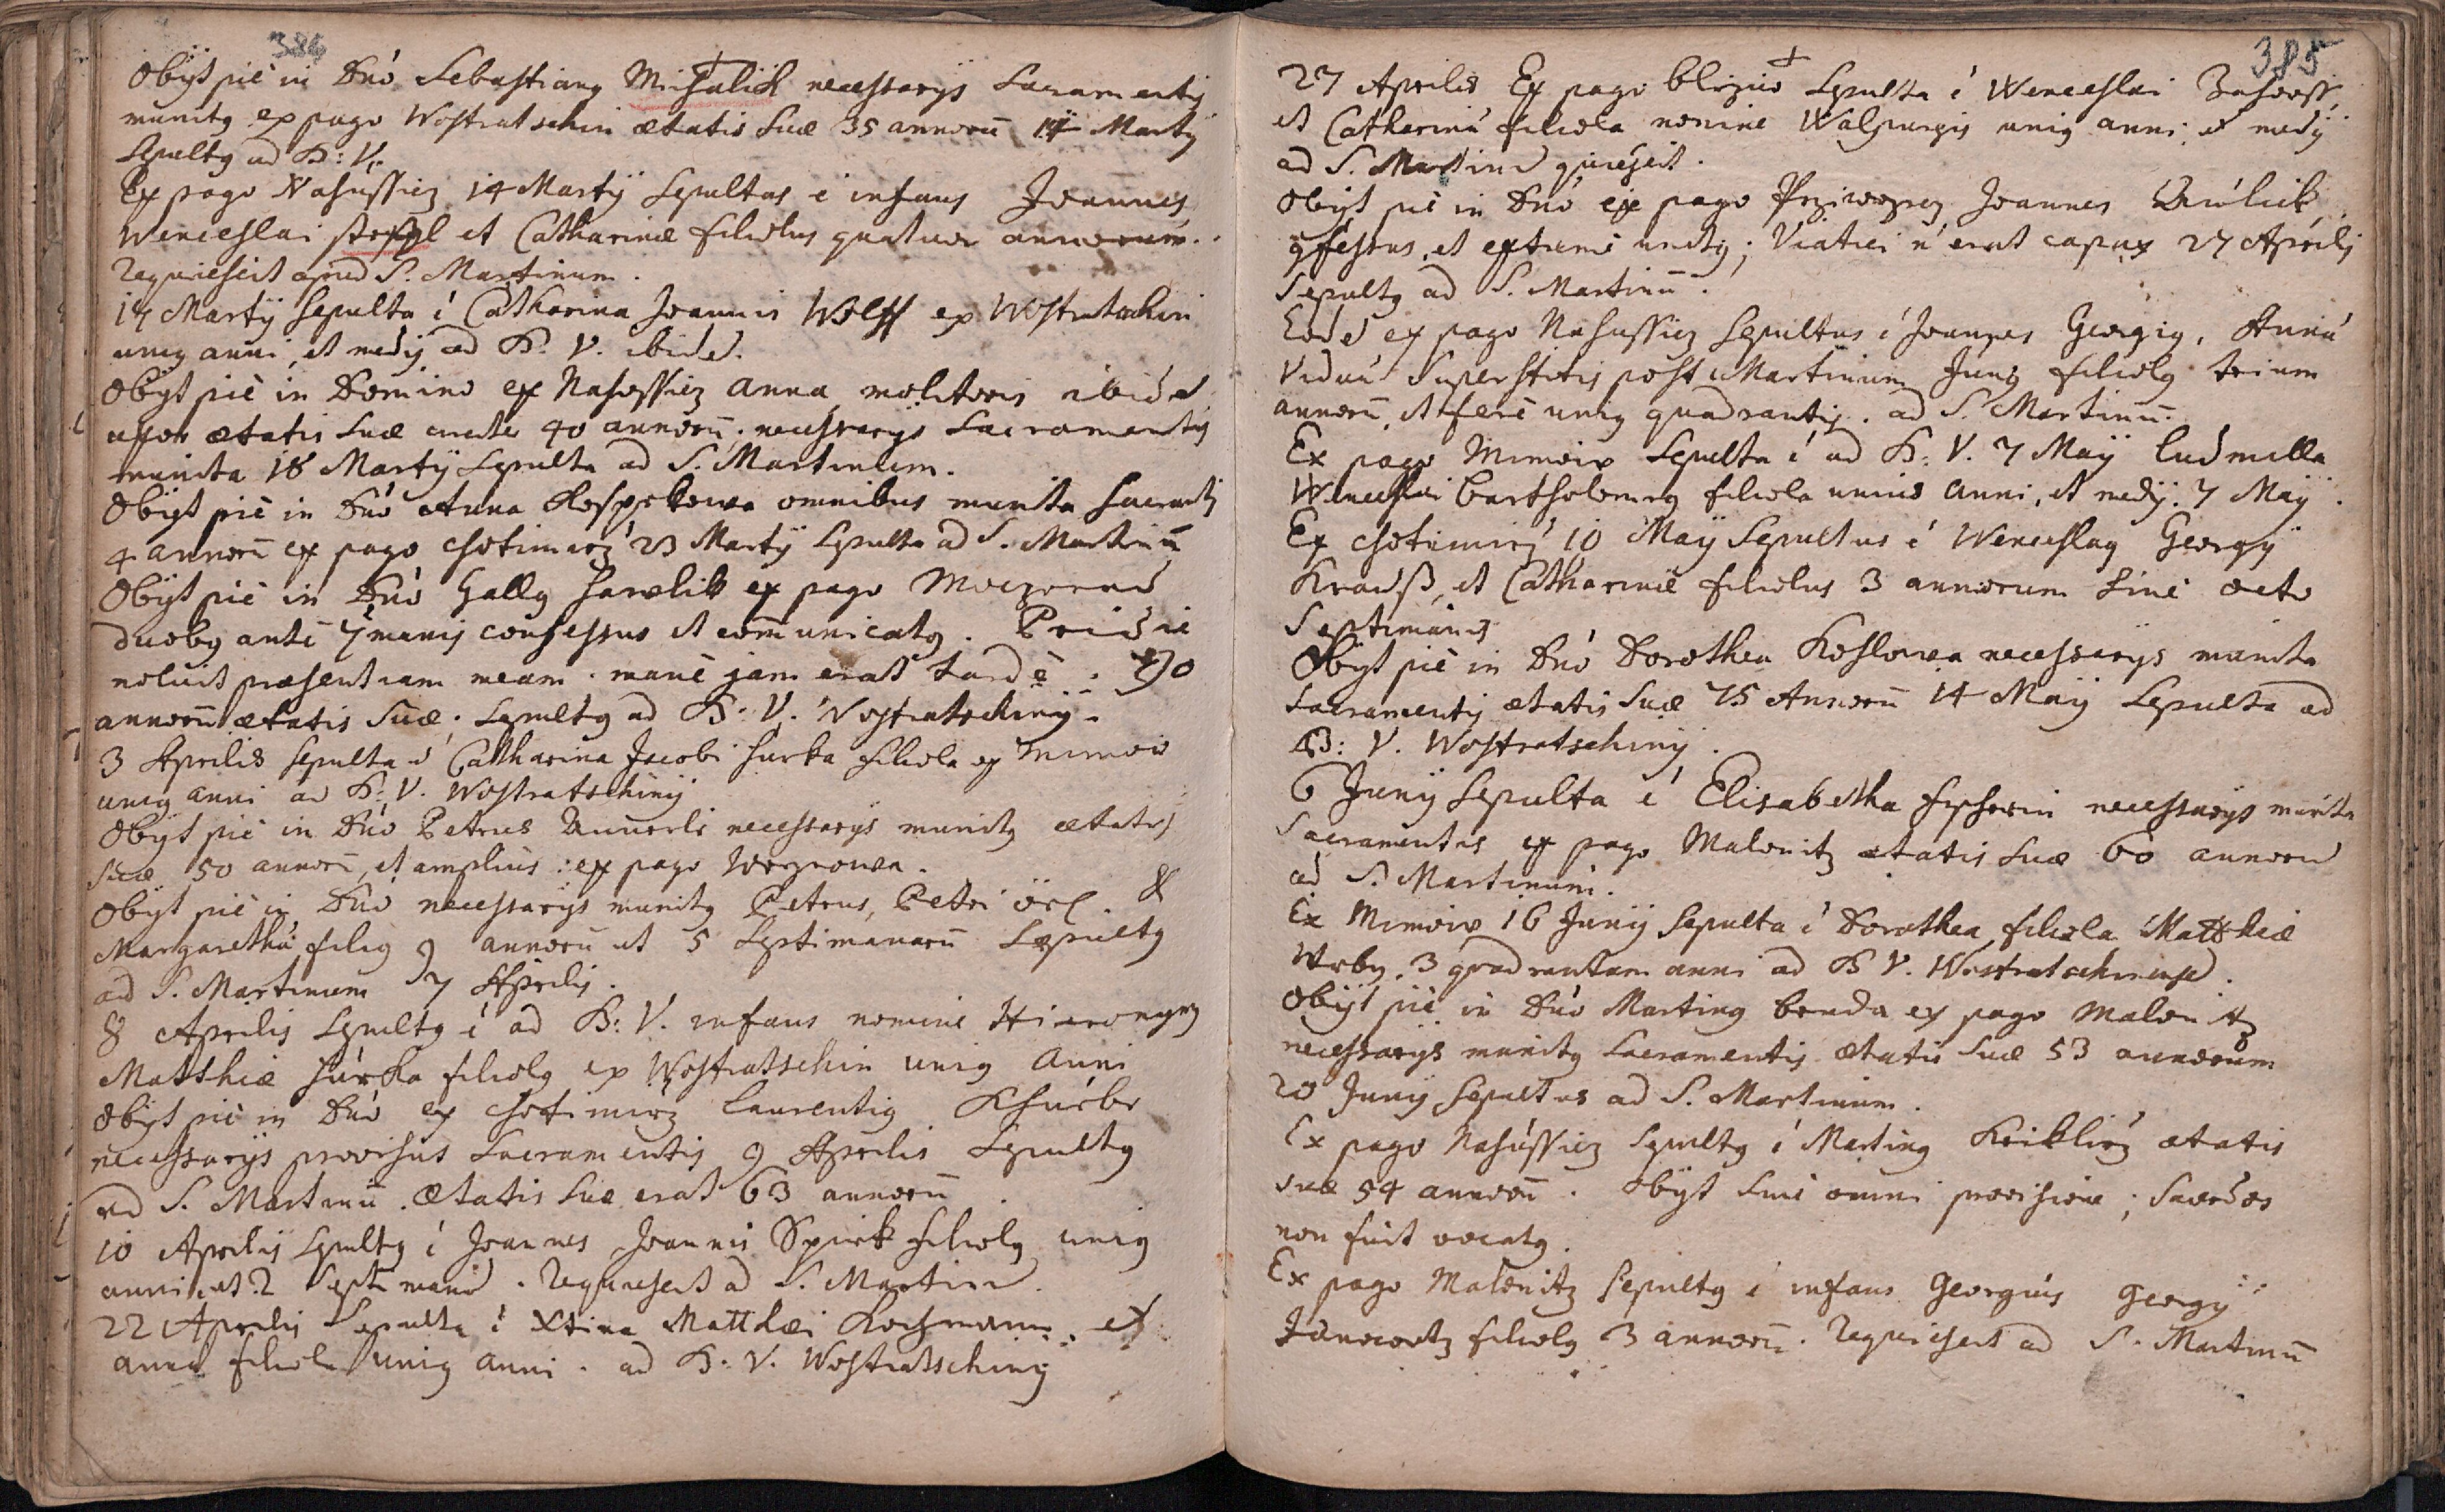 384
Obÿt piè in Dnó Sebastiang Michalick necessarÿs Sacramentÿ
munitg ex pago Wostratschin ætatis suæ 35 annorū 14 Martÿ
Sepultg ad B: V.
Ex pago Nahussicz 14 Martÿ Sepultus é infans Joannes
Wenceslai et Catharinæ filiolus quatuor annorum.
requiescit apud S. Martinum.
14 Martÿ sepulta é Catharina Joannis Wolff ex Wostratschin
unig anni, et medÿ ad B. V. ibidē.
Obÿt piè in Domino ex Nahossicz Anna molitoris ibidē
uxor ætatis suæ circiter 40 annorū; necessarÿs Sacramentÿ
munita 18 Martÿ Sepulta ad S. Martinum.
Obÿt piè in Dnó Anna omnibus munita Sacramtÿ
4 annorū ex pago Chotimirz 23 Martÿ Sepulta ad S. Martinū
Obÿt piè in Dnó Gallg Hawlik ex pago
duobg antè 7manis confessus et comunicatg. Pridie
noluit præsentiam meam. mane jam erat tardè. 70
annorū ætatis suæ. Sepultg ad B. V. Wostratschinÿ.
3 Aprilis sepulta é Catharina Jacobi Hurka filiola ex Mimow
unig anni ad B: V. Wostratschinÿ
Obÿt piè in Dnó Petrus necessarÿs munitg ætatis
suæ 50 annorū, et amplius: ex pago
Obÿt piè in Dnó necessarÿs munitg Petrus, Petri &
Margarethæ filig 9 annorū et 5 Septimanarū Sepultg
ad S. Martinum 7 Aprilis.
8 Aprilis Sepultg é ad B: V. infans nomine Hieronymg
Matthiæ Hurka filiolg ex Wostratschin unig Anni
Obÿt piè in Dnó ex Chotimirz Laurentig
necessarÿs provisus Sacramentis 9 Aprilis Sepultg
ad S. Martinū. Ætatis suæ erat 63 annorū.
10 Aprilis Sepultg é Joannes Joannis Spirk filiolg unig
anni et 2 Septimanū. requiescit ad S. Martinū.
22 Aprilis Sepulta é Xtina Matthæi Kochmann et
Annæ filiola unig anni. ad B. V. Wostratschinÿ
385
27 Aprilis Ex pago Blizio Sepulta é Wenceslai
et Catharinæ filiola nomine Walpurgis unig anni et medÿ
ad S. Martinū quiescit.
Obÿt piè in Dnó ex pago Prziwozecz Joannes
9fessus, et extremè unctg; Viatici n̄ erat capax 27 Aprilÿ
Sepultg ad S. Martinū.
Eodē ex pago Nahussicz Sepultus é Joannes Georgig, Annæ
viduæ superstitis post Martinum Jung filiolg trium
annorū, et ferè unig quadrantis. ad S. Martinū.
Ex pago Mimow Sepulta é ad B: V. 7 Maÿ Ludmilla
Wenceslai Bartholomeg filiola unius anni, et medÿ. 7 Maÿ.
Ex Chotimirz 10 Maÿ Sepultus é Wenceslag Georgÿ
Krauß, et Catharinæ filiolus 3 annorum sine octo
Septimanis
Obÿt piè in Dnó Dorothea Koslowa necessarÿs munita
Sacramentÿ ætatis suæ 75 Annorū 14 Maÿ Sepulta ad
B: V. Wostratschinÿ.
6 Junÿ Sepulta é Elisabetha necessarÿs munita
Sacramentis ex pago Malonitz ætatis suæ 60 annorū
ad S. Martinum.
Ex Mimow 16 Junÿ Sepulta é Dorothea filiola Matthiæ
3 quadrantum anni ad B V. Wostratschinensē.
Obÿt piè in Dnó Marting Benda ex pago Malonitz
necessarÿs munitg Sacramentis ætatis suæ 53 annorum
20 Junÿ Sepultus ad S. Martinum.
Ex pago Nahussicz Sepultg é Marting ætatis
suæ 54 annorū. Obÿt sine omni provisione; Sacerdos
non fuit vocatg.
Ex pago Malonitz Sepultg é infans Georgius Georgÿ
filiolg 3 annorū. requiescit ad S. Martinū